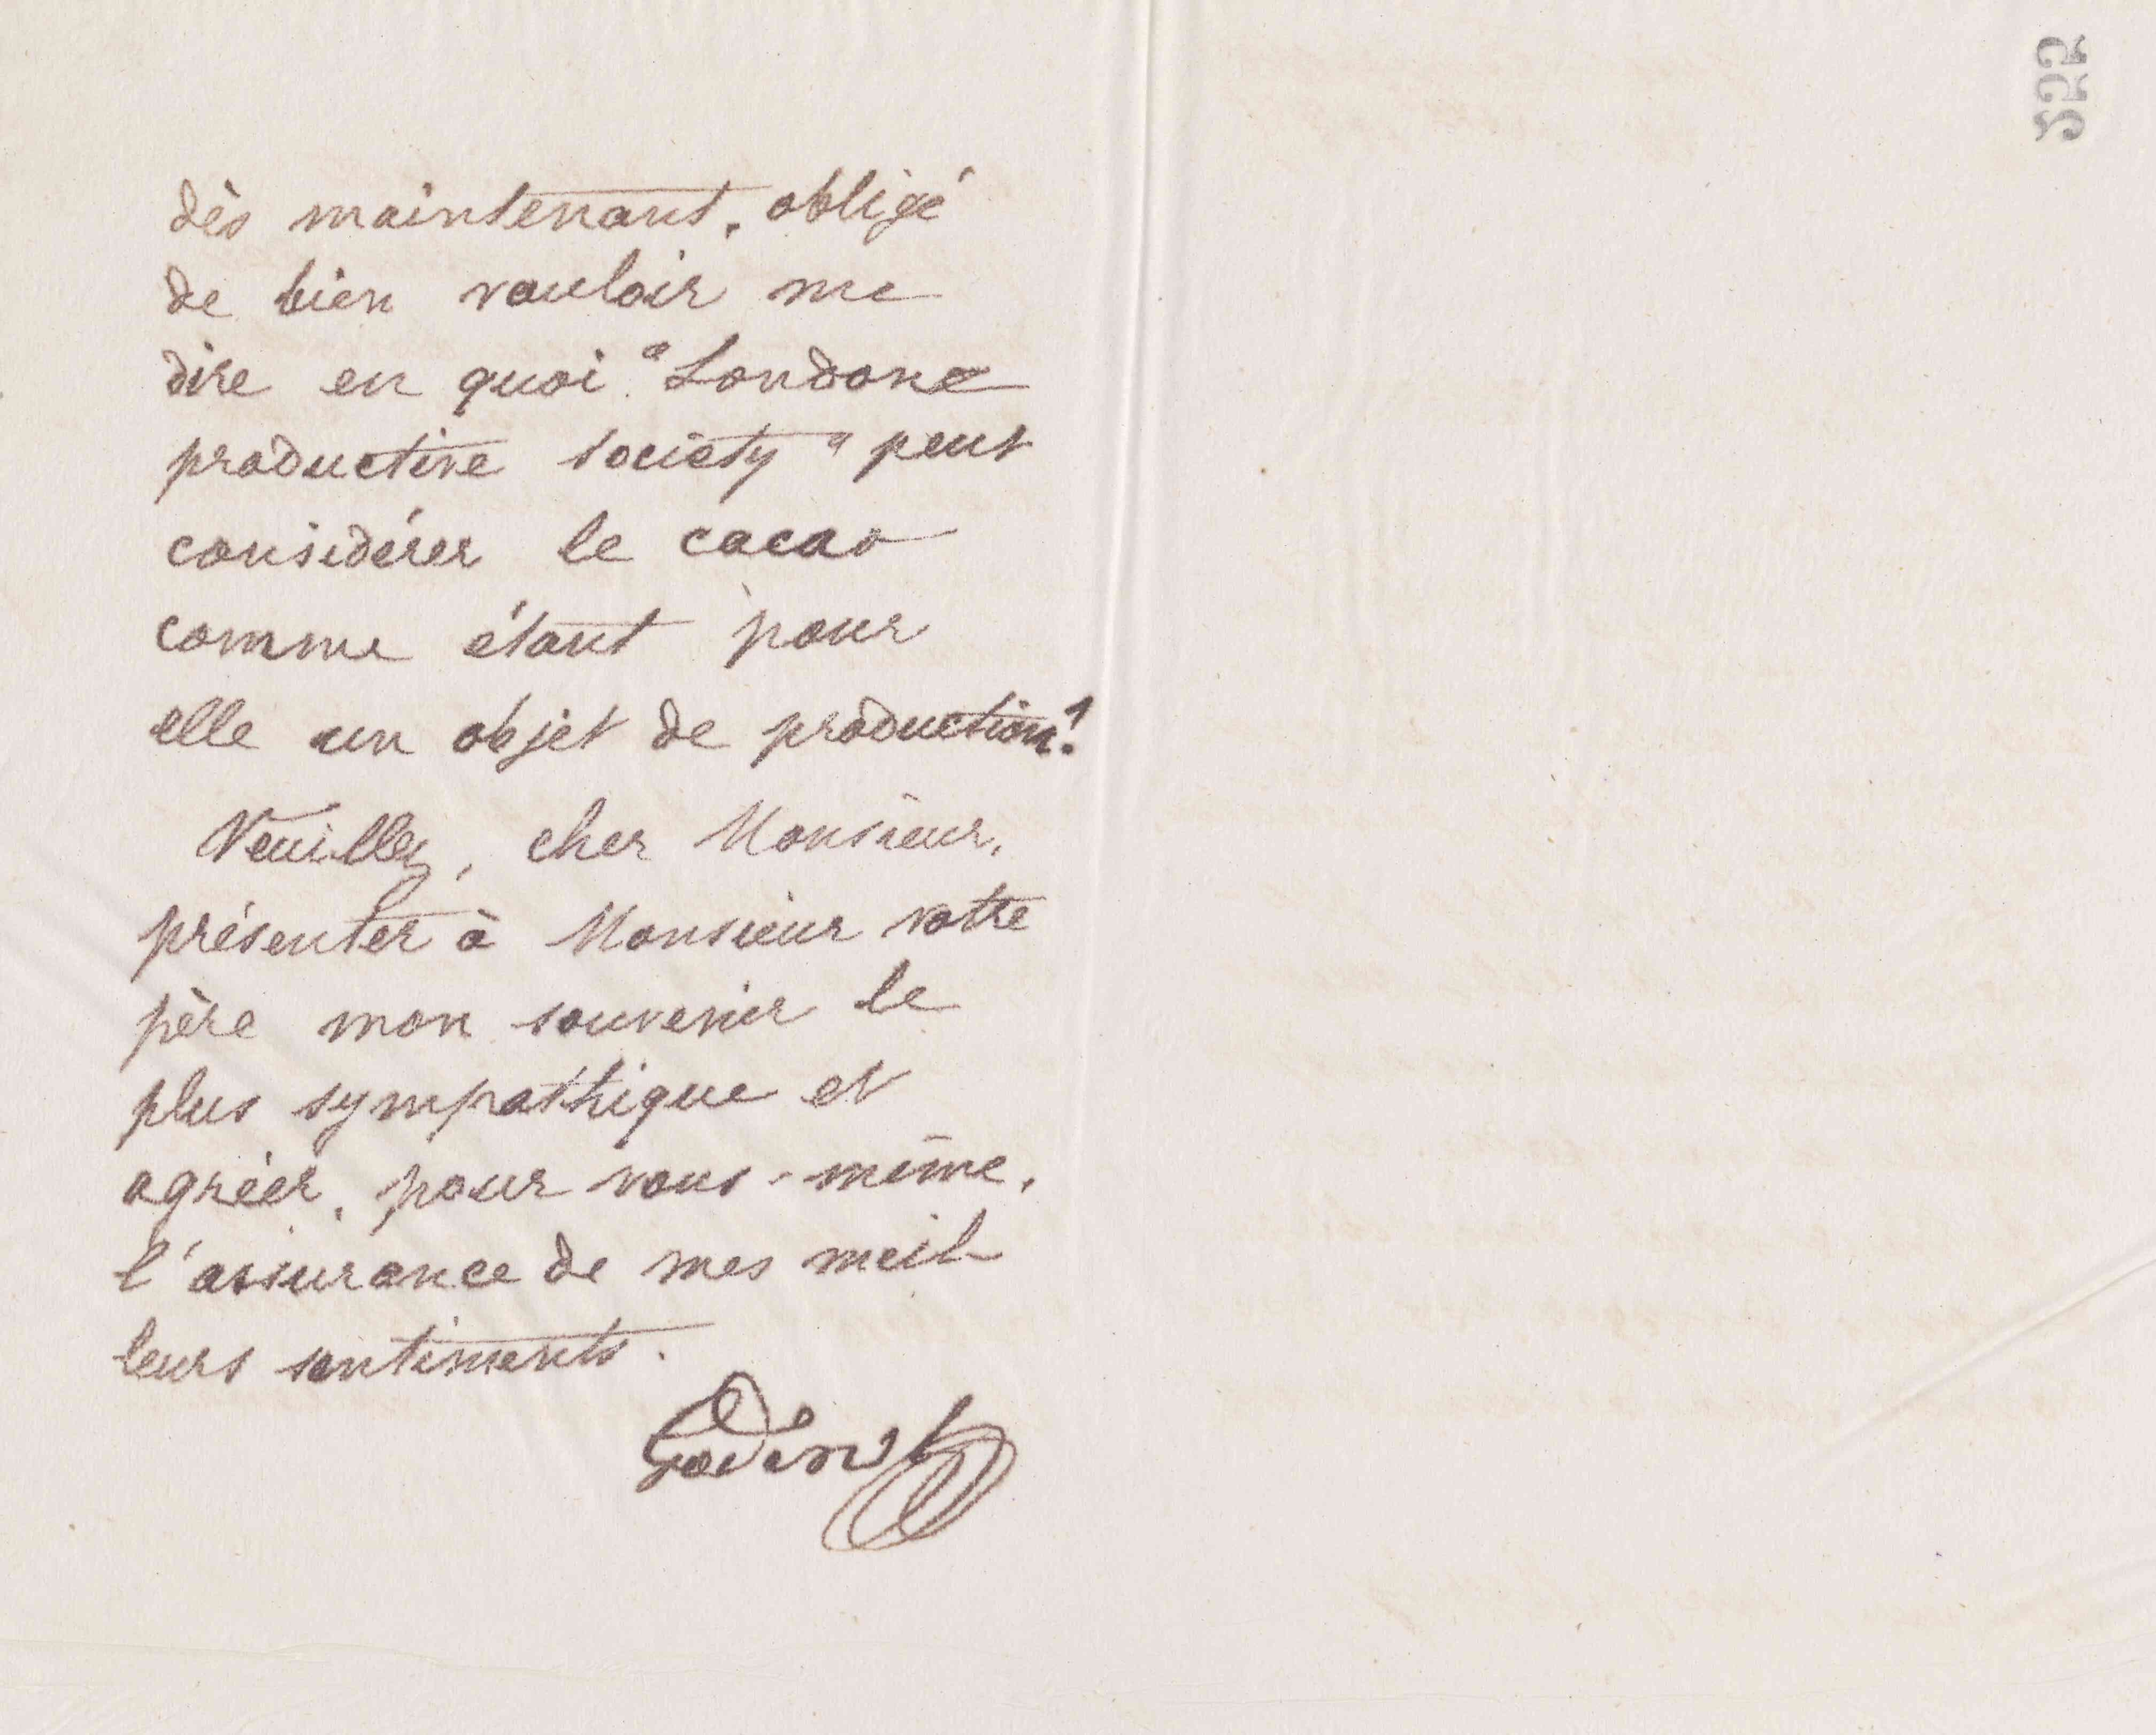 dès maintenant, obligé
de bien vouloir me
dire en quoi "Londone
productive society" peut
considérer le cacao
comme étant pour
elle un objet de production?
Veuillez, cher Monsieur,
présenter à Monsieur votre
père mon souvenir le
plus sympathique et
agréer, pour vous-même,
l'assurance de mes meil
leurs sentiments.
Godin
255